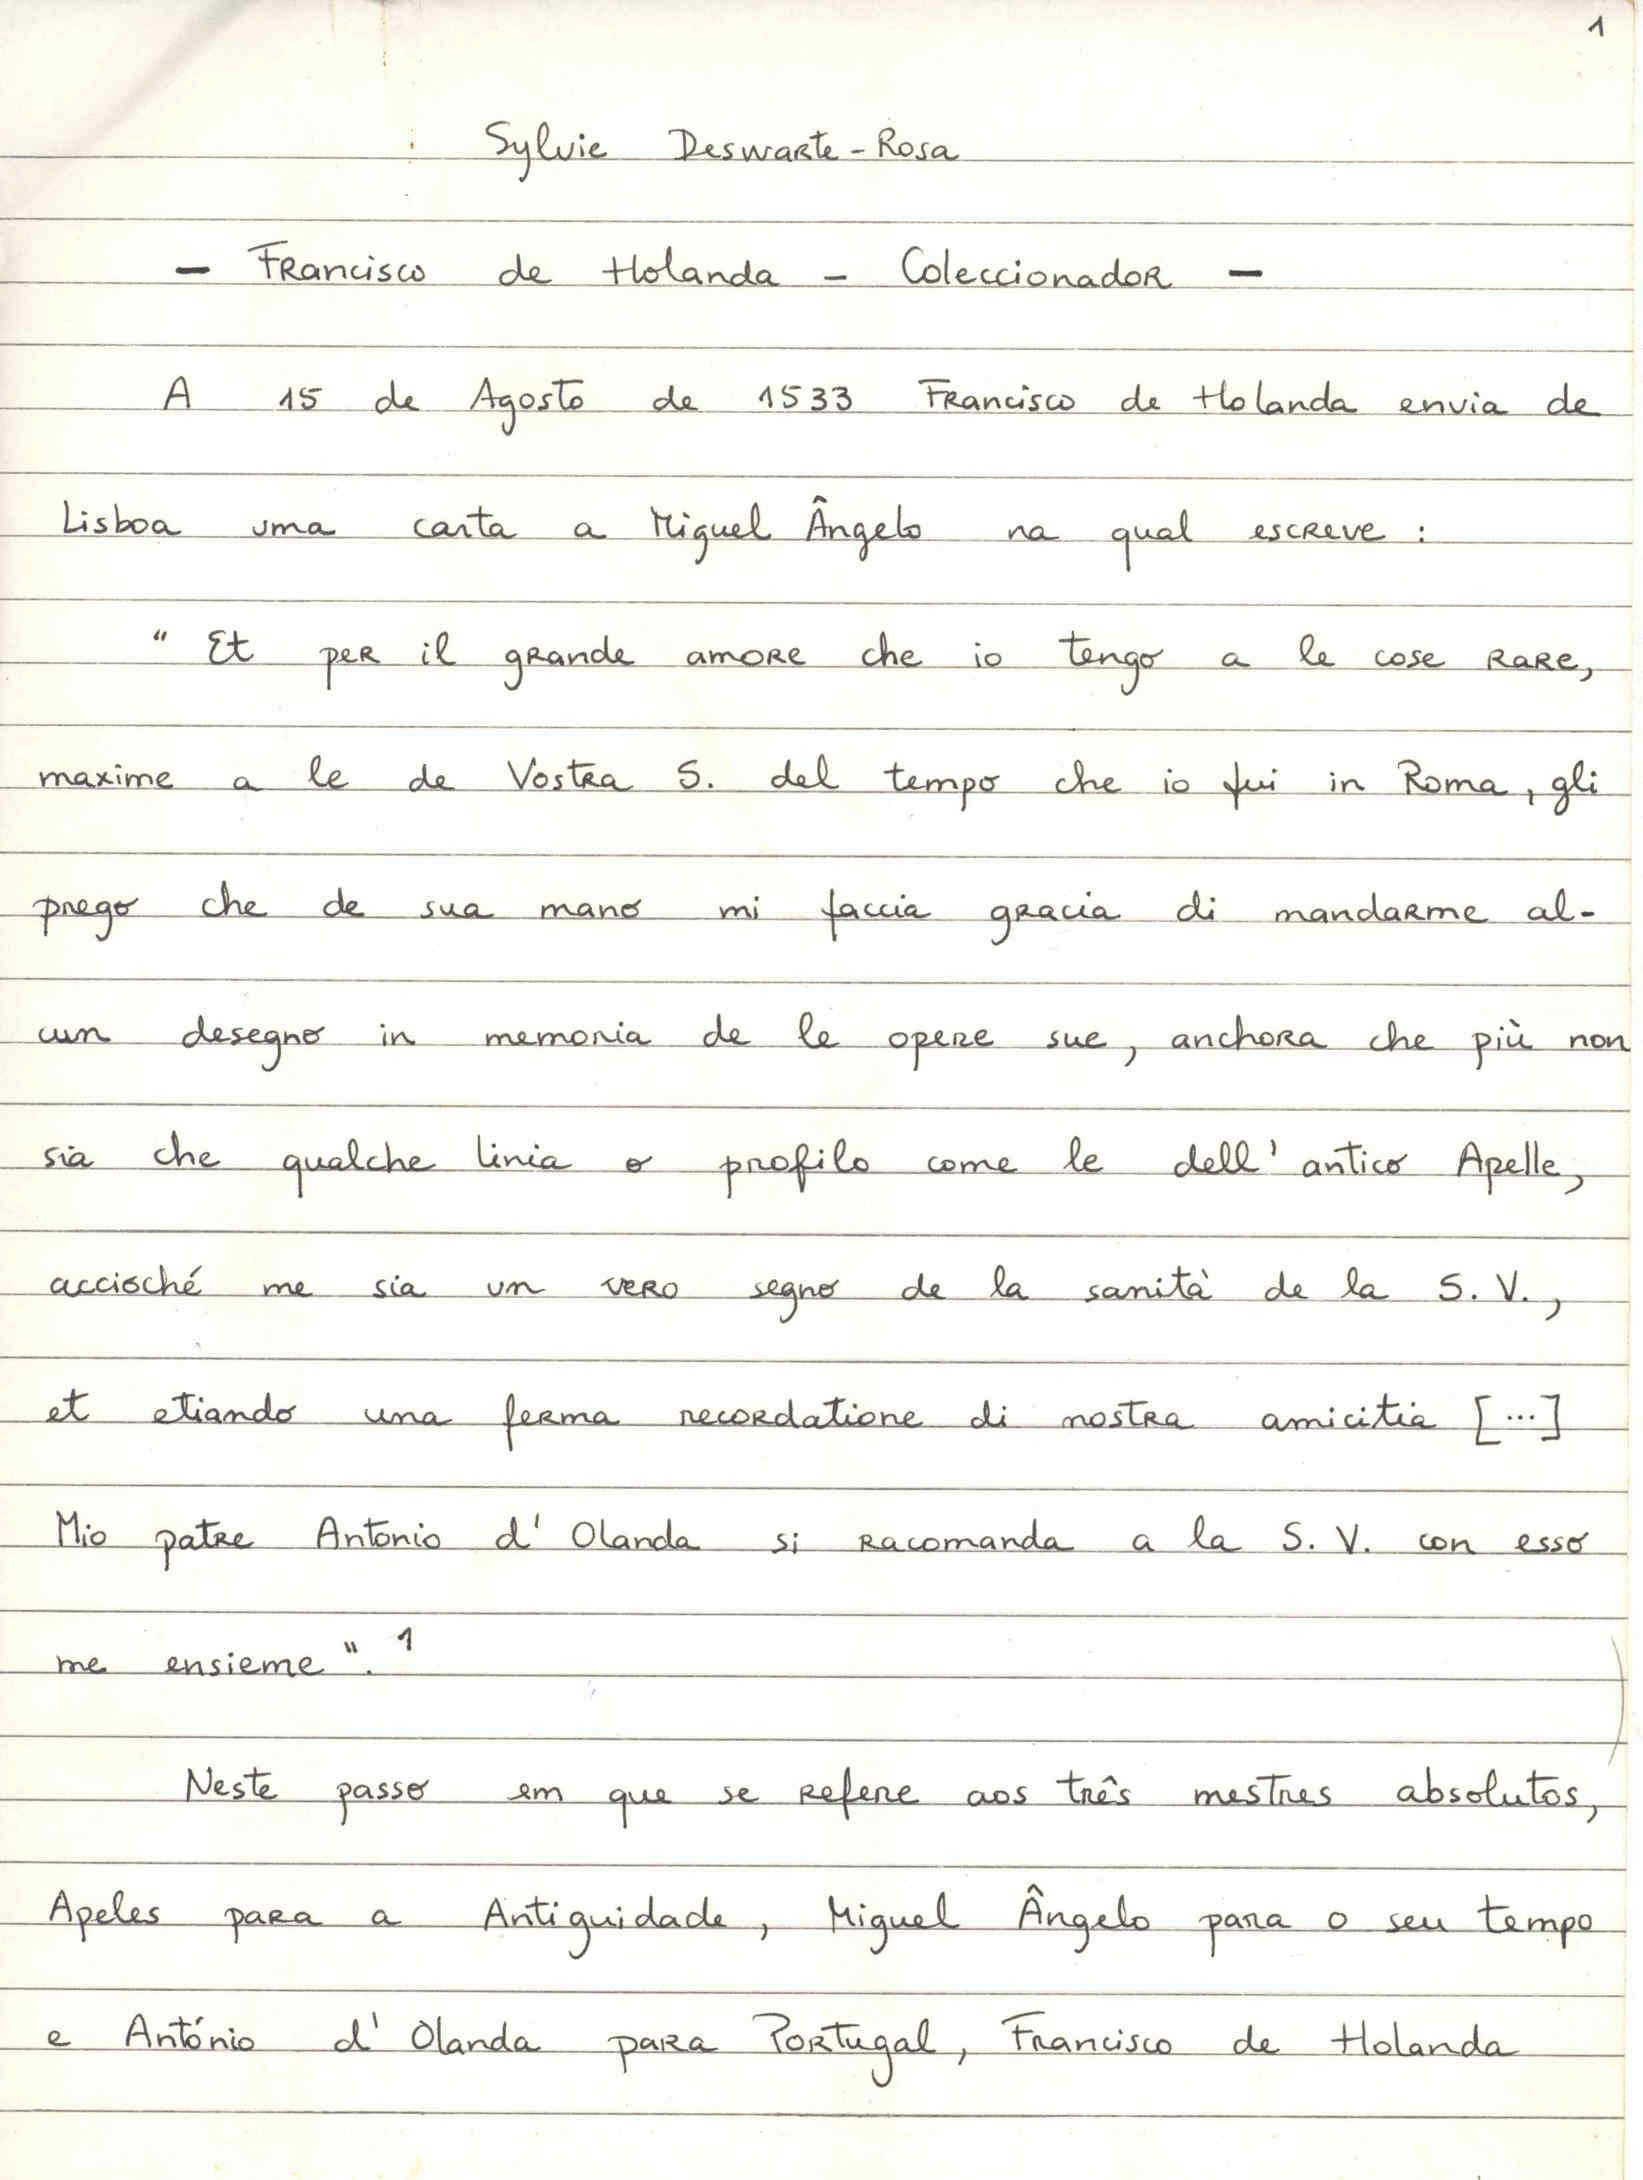 1
Sylvie Deswarte-Rosa
- Francisco de Holanda - Coleccionador -
A 15 de Agosto de 1533 Francisco de Holanda envia de
Lisboa uma carta a Miguel Ângelo na qual escreve :
" Et per il grande amore che io tengo a le cose rare,
maxime a le de Vostra S. del tempo che io fui in Roma, gli
prego che de sua mano mi faccia gracia di mandarme al-
cun desegno in memoria de le opere sue, anchora che più non
sia che qualche linia o profilo come le dell' antico Apelle,
accioché me sia un vero segno de la sanità de la S. V.,
et etiando una ferma recordatione di nostra amicitia [...]
Mio patre Antonio d' Olanda si racomanda a la S. V. con esso
me ensieme ". 1
Neste passo em que se refere aos três mestres absolutos,
Apeles para a Antiguidade, Miguel Ângelo para o seu tempo
e António d' Olanda para Portugal, Francisco de Holanda